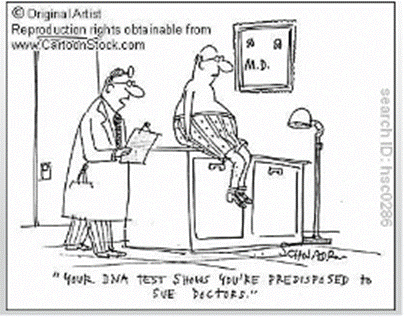 © Original Artist
Reproduction rights obtainable from
www.CartoonStock.com
M.D.
search ID: hsc0286
SCHWADRON
"YOUR DNA TEST SHOWS YOU'RE PREDISPOSED TO
SUE DOCTORS."